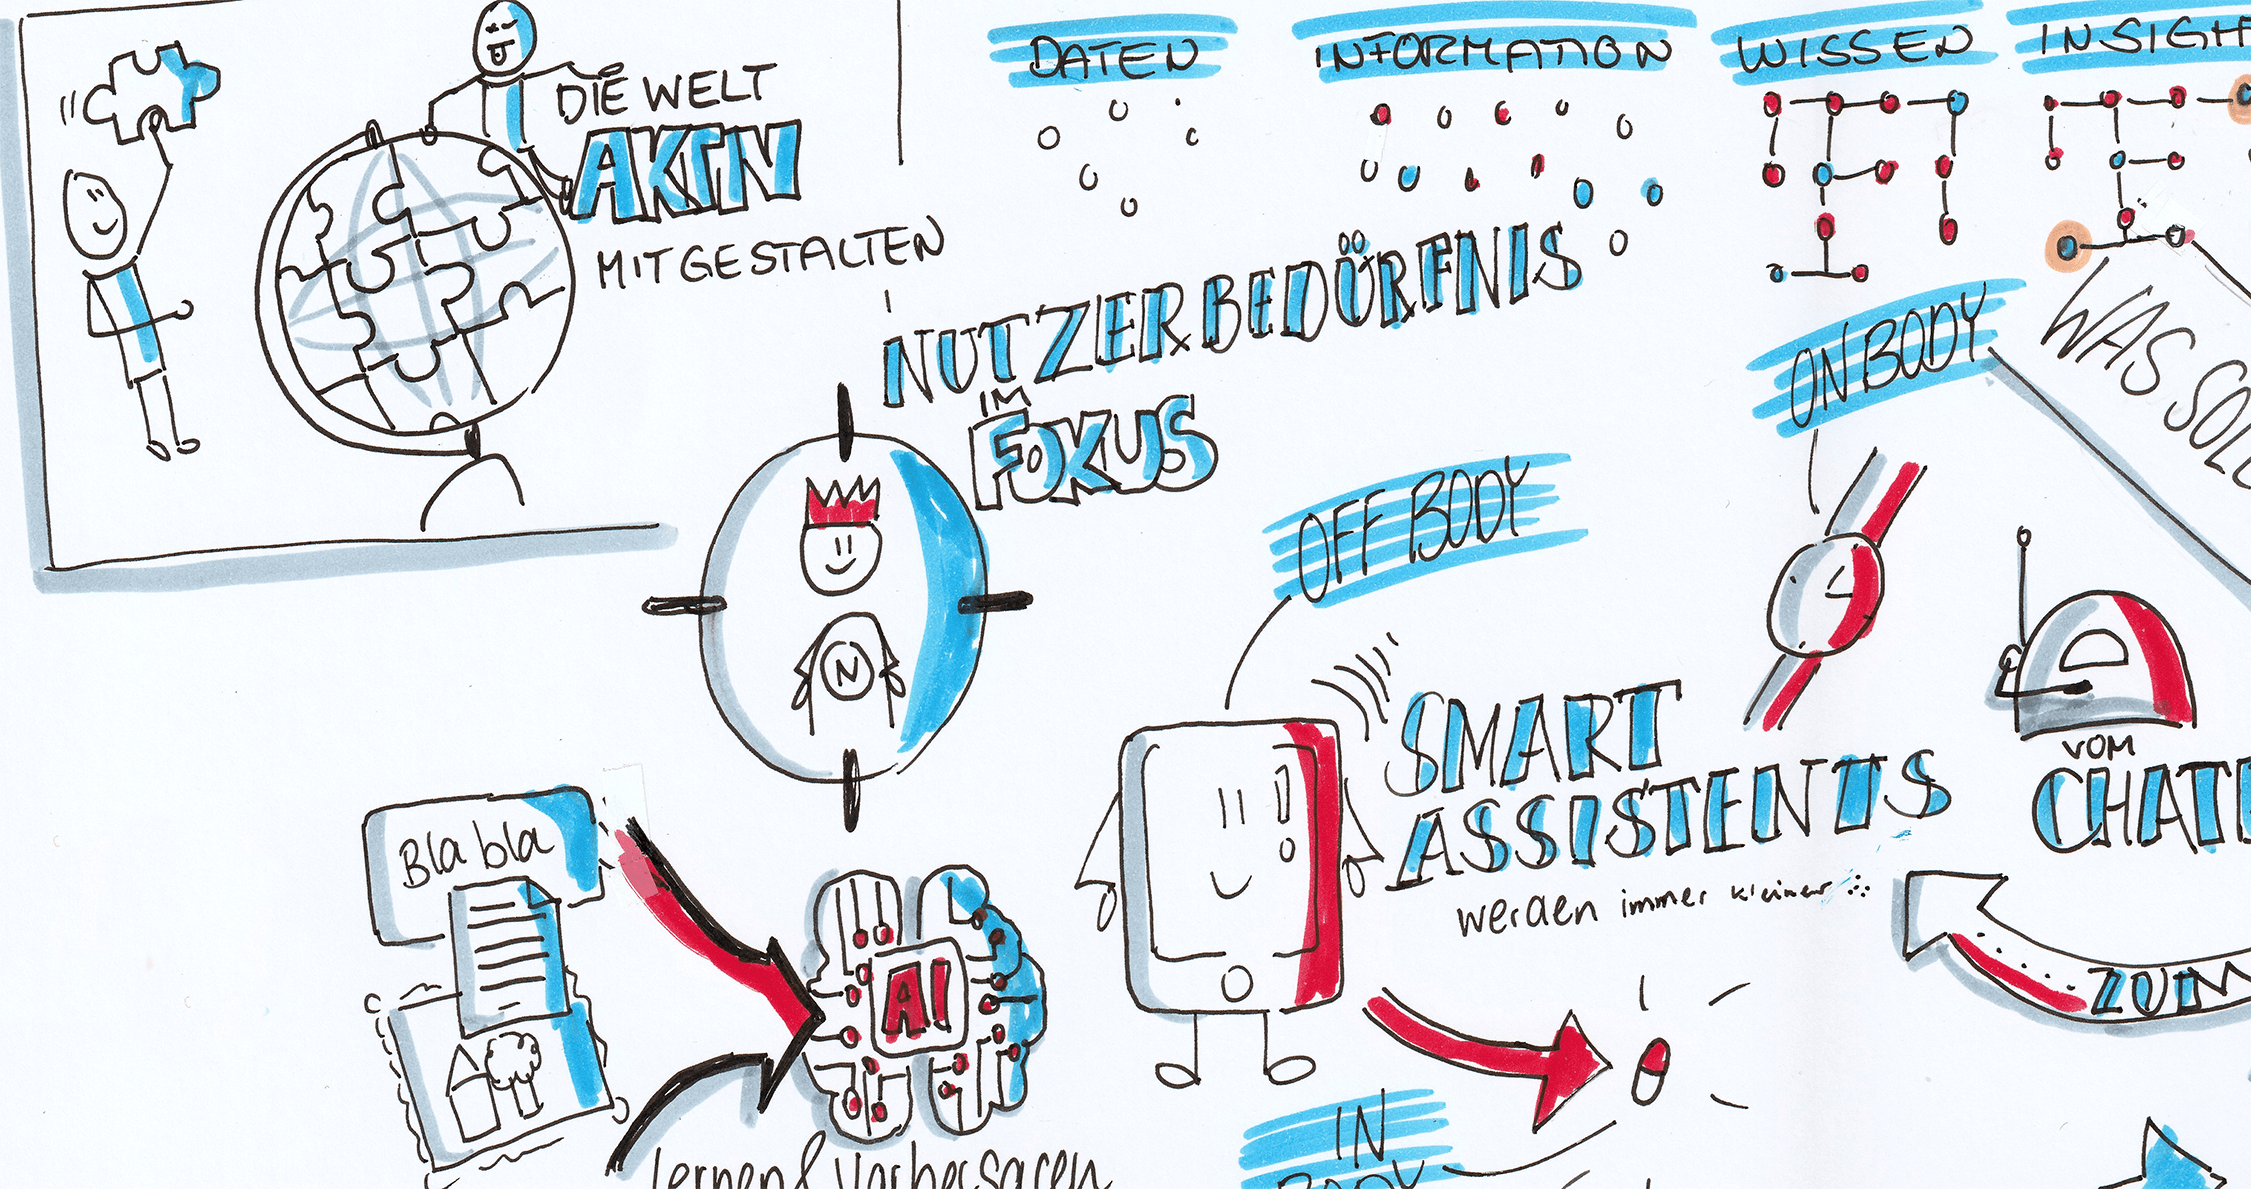 DIE WELT
AKTIV
MITGESTALTEN
DATEN
INFORMATION
WISSEN
NUTZERBEDÜRFNIS
IM
FOKUS
N
OFF BODY
ON BODY
WAS
SMART
ASSISTENTS
werden immer kleiner
VOM
ZUM
Bla bla
AI
lernen & vorhersagen
IN
BODY